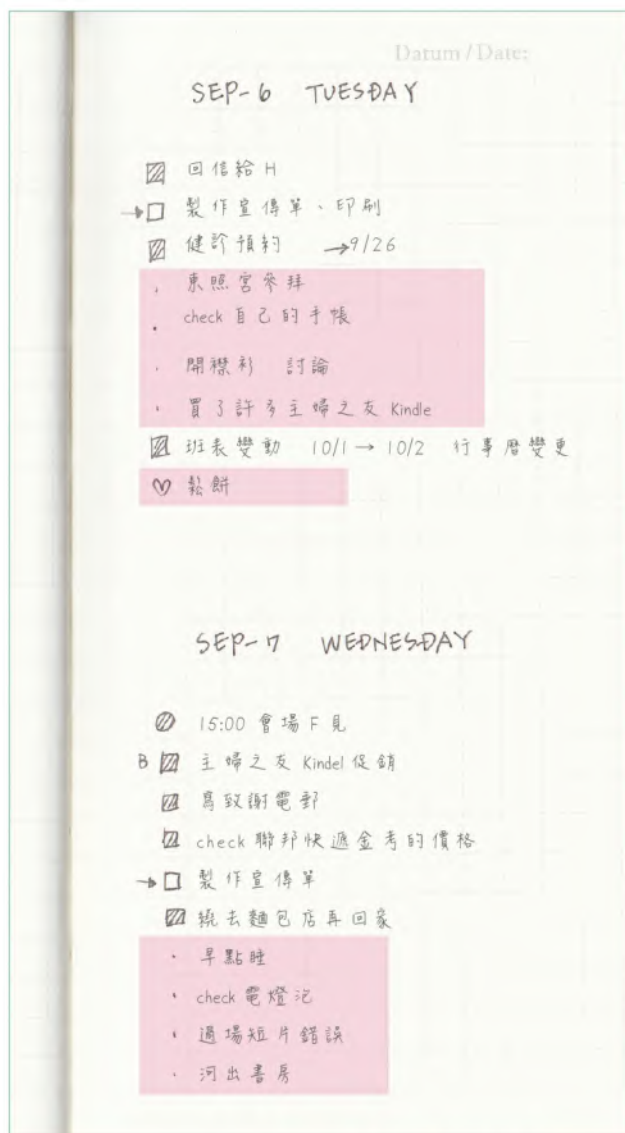 Datum / Date:
SEP-6 TUESDAY
回信給 H
→ 製作宣傳單、印刷
健診預約 →9/26
· 東照宮參拜
· check 自己的手帳
· 開襟衫 討論
· 買了許多主婦之友 Kindle
班表變動 10/1 → 10/2 行事曆變更
♡ 鬆餅
SEP-7 WEDNESDAY
15:00 會場 F 見
B 主婦之友 Kindel 促銷
寫致謝電郵
check 聯邦快遞金考的價格
→ 製作宣傳單
繞去麵包店再回家
· 早點睡
· check 電燈泡
· 過場短片錯誤
· 河出書房